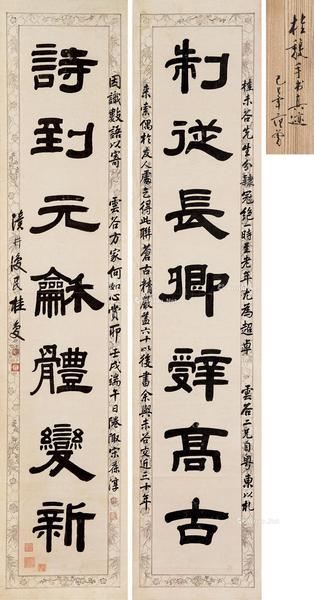 制從長卿辭高古
詩到元龢體變新
瀆井復民桂馥
桂未谷先生分隸冠絕一時至老年尤為超卓
雲谷二兄自粵東以札
來索偶於友人處乞得此聯蒼古精嚴蓋六十以後書余與未谷交近三十年
因識數語以寄
雲谷方家何如心賞耶
壬戌端午日
宗葆淳
桂馥手書真迹